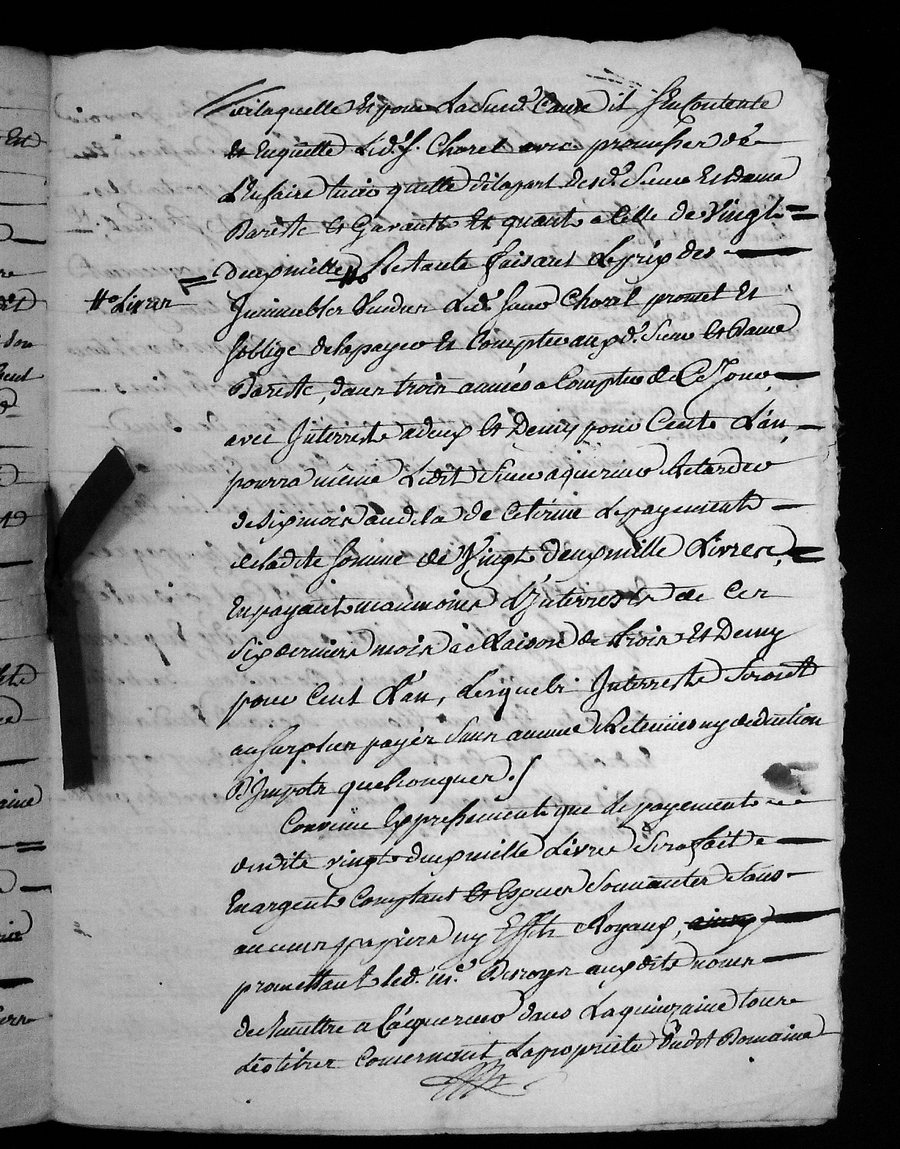 de laquelle Et pour La Susd.e Cause il S'En Contente
Et En quitte Led. S. Choret avec promesse de
L'En faire tenir quitte de la part desd. Sieur Et Dame
Barette Et Garantir Et quant a Celle de Vingt =
deux mille # Restante faisant Le prix des
# Livres
Immeubles Vendus Led. Sieur Choret promet Et
S'oblige de la payer Et Compter auxd. Sieur Et Dame
Barette, dans trois années a Compter de Ce Jour,
avec Interrests a deux Et Demy pour Cent L'an,
pourra même Ledit Sieur aquereur Retarder
de six mois au dela de Ce terme Le payement
de ladite Somme de Vingt deux mille Livres,
En payant neanmoins L'Interrests de Ces
Six derniers mois a Raison de trois Et Demy
pour Cent L'an, Lesquels Interrests Seront
au Surplus payés Sans aucune Retenües ny deduction
D'Impots quelconques. /
Convenu Expressement que le payement
desdits vingt deux mille Livres Sera fait
En argent Comptant Et Especes Sonnantes Sans
aucuns papiers ny Effets Royaux,
promettant led. m.e auxdits noms
de Remettre a L'acquereur dans La quinzaine tous
Les titres Concernant La propriété Dudit Domaine